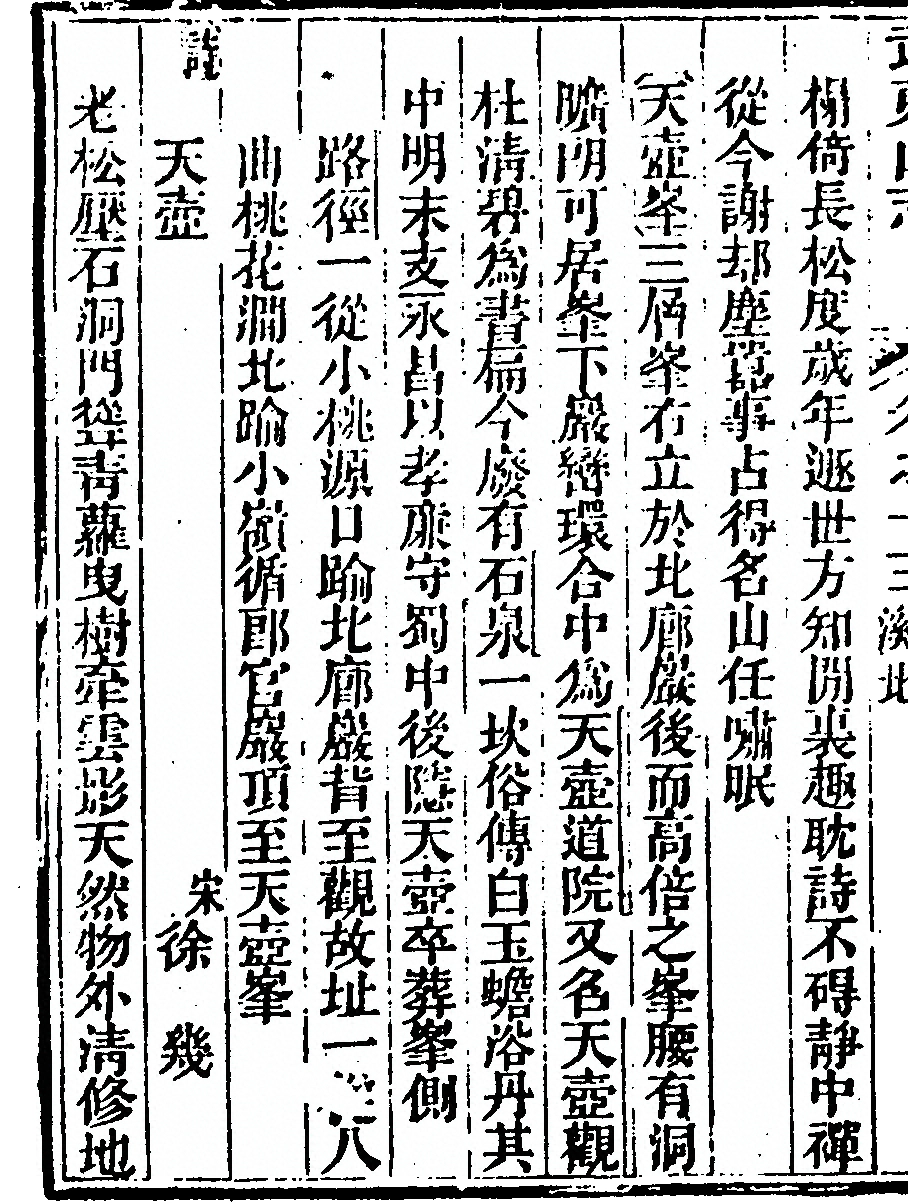 榻倚長松度歲年遯世方知閒裏趣耽詩不碍靜中禪
從今謝却塵囂事占得名山任嘯眠
天壺峯三層峯右立於北廊巖後而高倍之峯腰有洞
曠朗可居峯下巖巒環合中為天壺道院又名天壺觀
杜清碧為書扁今廢有石泉一坎俗傳白玉蟾浴丹其
中明末支永昌以孝廉守蜀中後隱天壺卒葬峯側
路徑一從小桃源口踰北廊巖背至觀故址一 八
曲桃花澗北踰小嶺循郎官巖頂至天壺峯
詩
天壺 宋徐 幾
老松壓石洞門從靑蘿曳樹牽雲影天然物外清修地